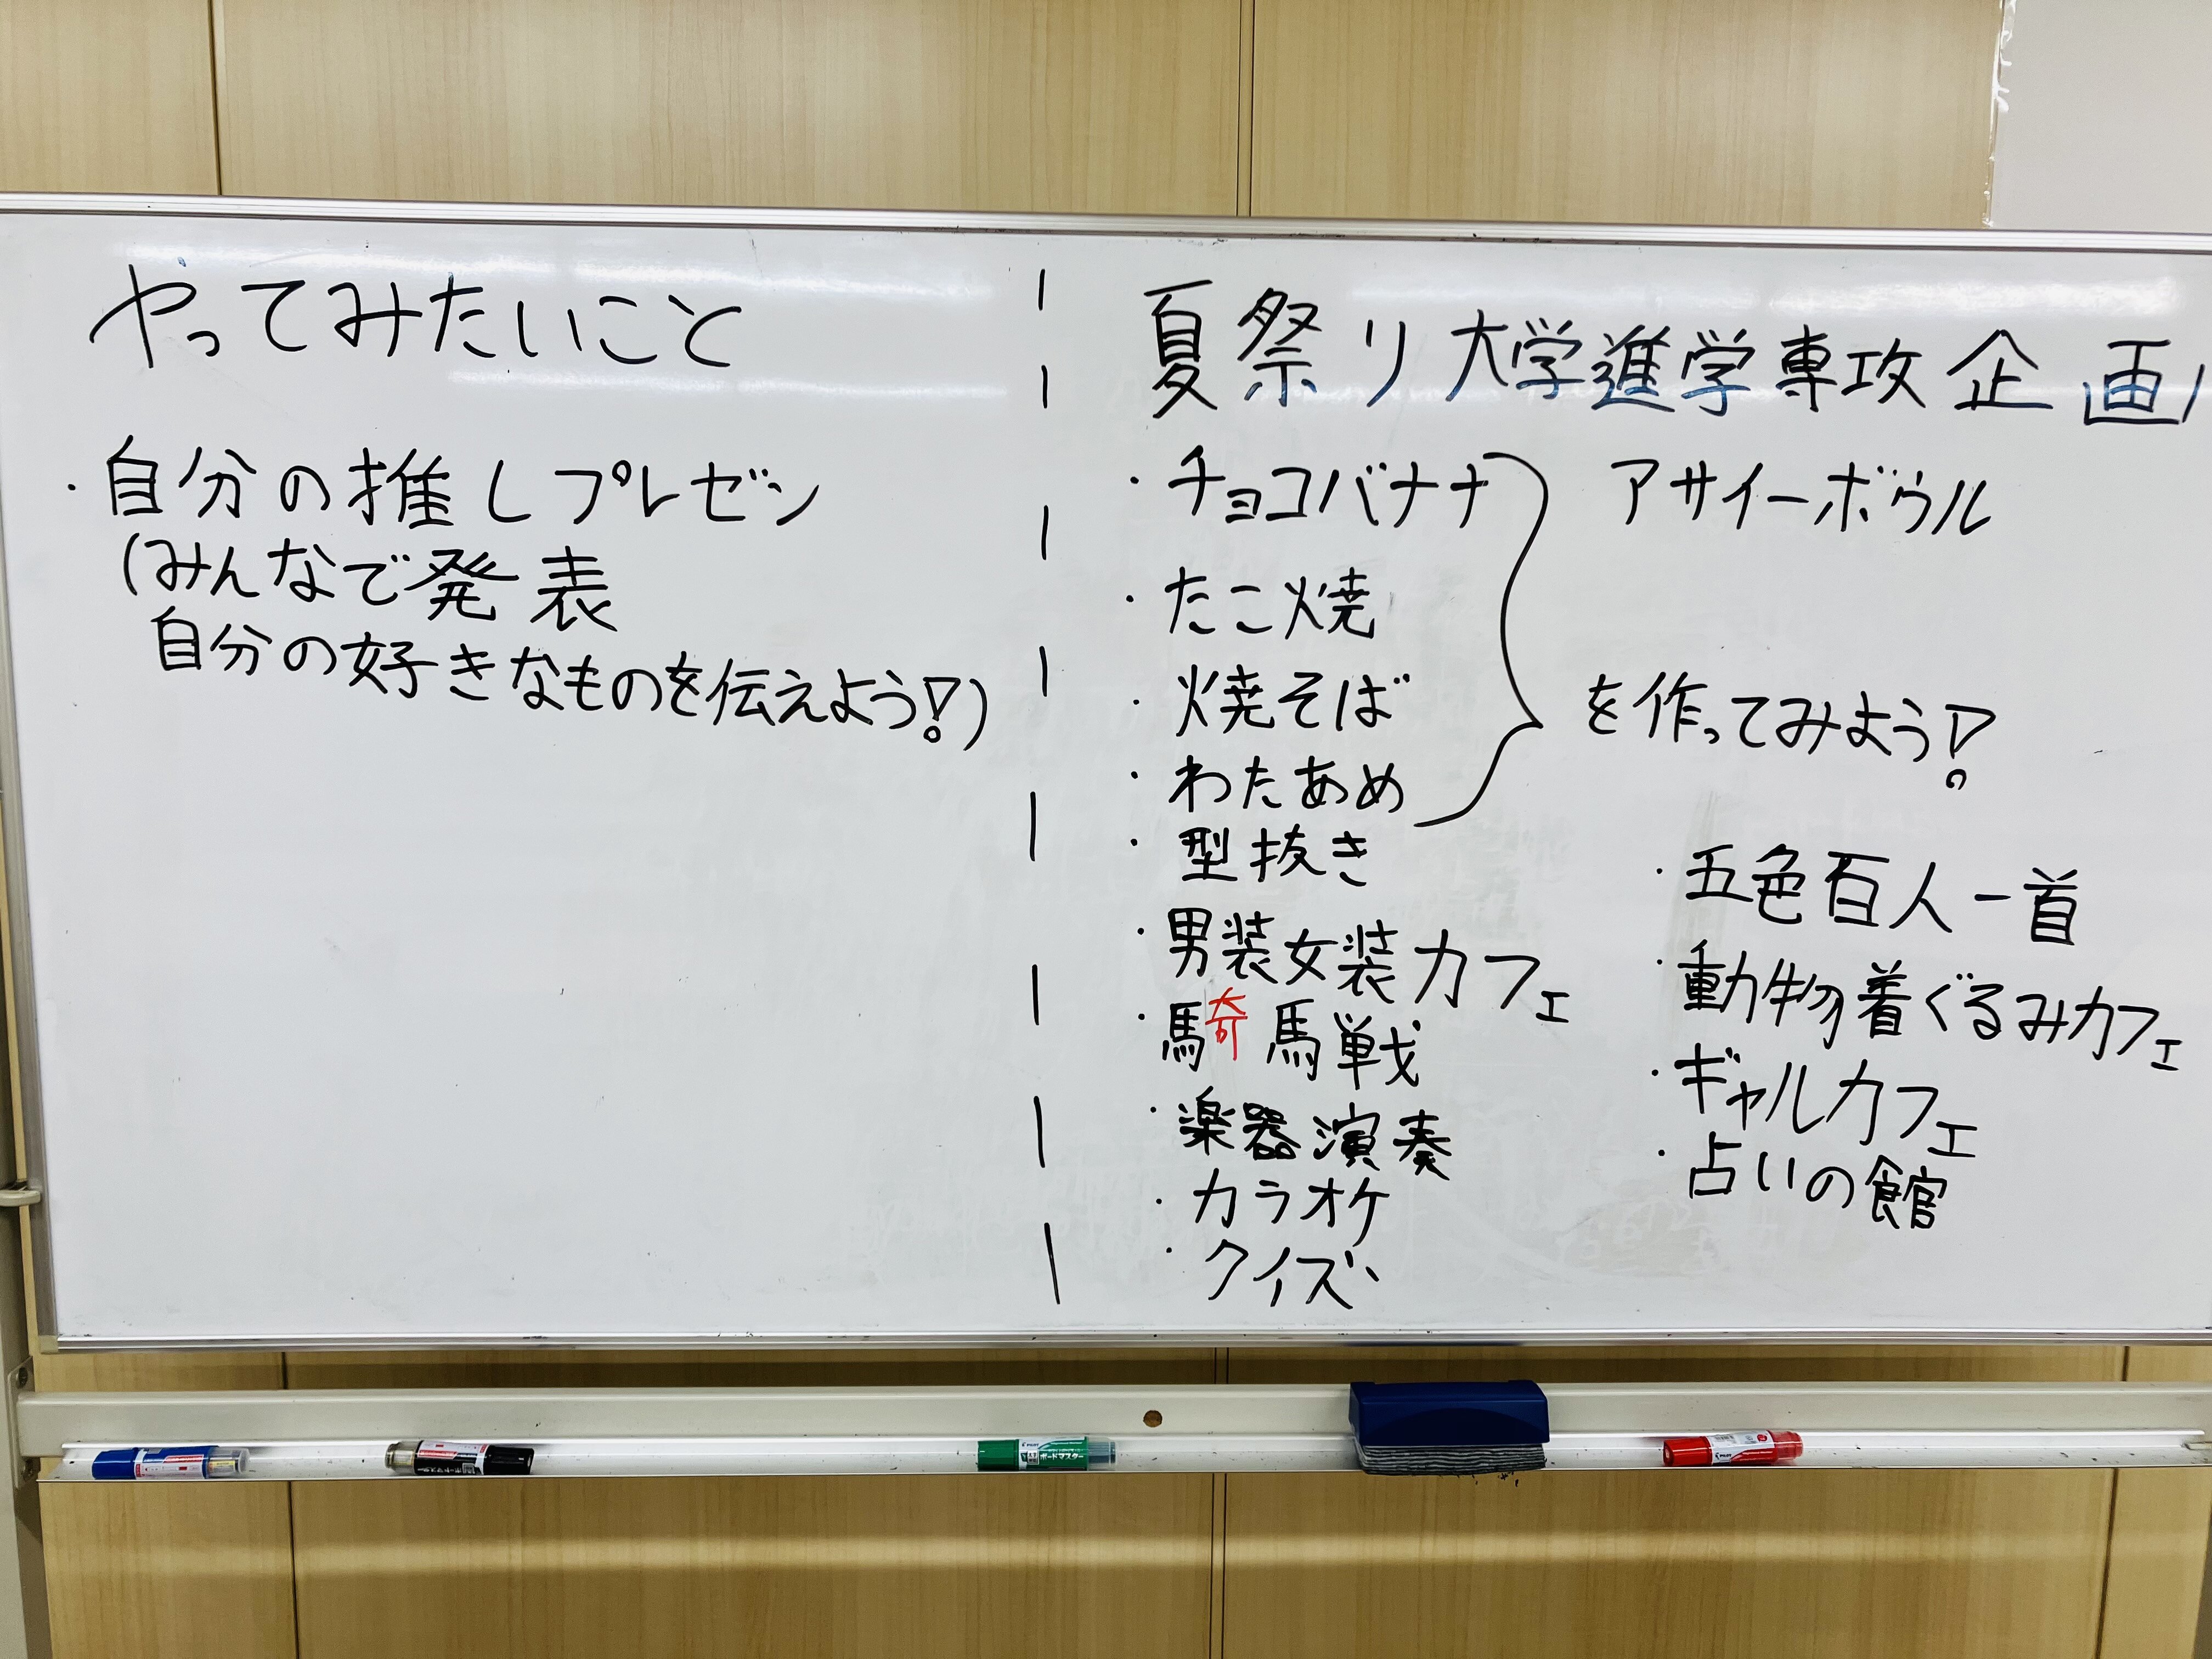 やってみたいこと
・自分の推しプレゼン
(みんなで発表
自分の好きなものを伝えよう!)
夏祭り大学進学専攻企画
・チョコバナナ
アサイーボウル
・たこ焼
・焼そば
・わたあめ
を作ってみよう!
・型抜き
・男装女装カフェ
・騎馬戦
・楽器演奏
・カラオケ
・クイズ
・五色百人一首
・動物着ぐるみカフェ
・ギャルカフェ
・占いの館
ボードマスター